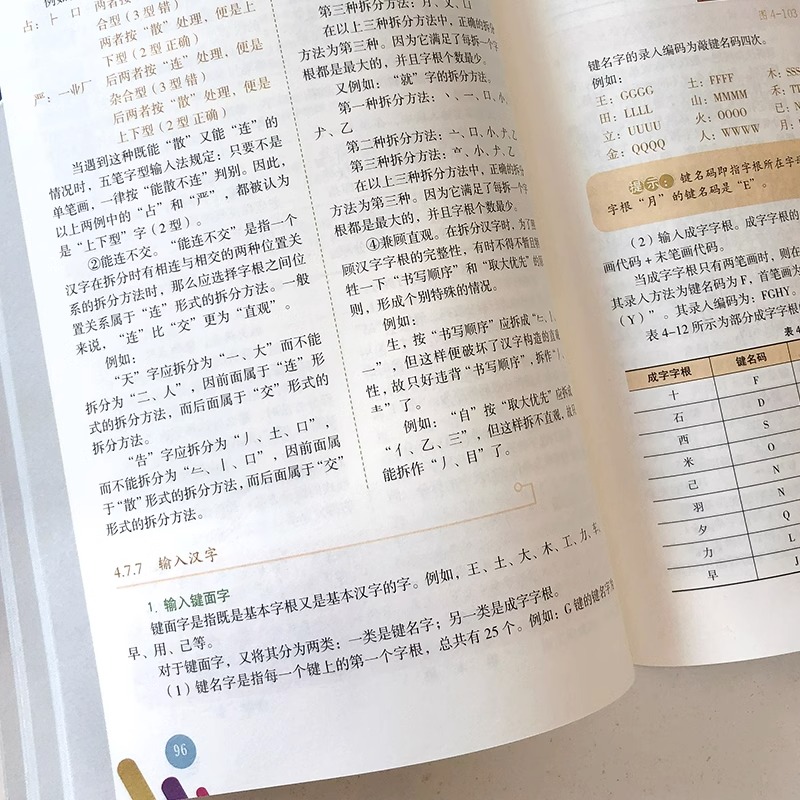 占：⺊ 口 两者按
合型（3 型错）
两者按“散”处理，便是上
下型（2 型正确）
严：一业厂 后两者按“连”处理，便是
杂合型（3 型错）
后两者按“散”处理，便是
上下型（2 型正确）
当遇到这种既能“散”又能“连”的
情况时，五笔字型输入法规定：只要不是
单笔画，一律按“能散不连”判别。因此，
以上两例中的“占”和“严”，都被认为
是“上下型”字（2 型）。
②能连不交。“能连不交”是指一个
汉字在拆分时有相连与相交的两种位置关
系的拆分方法时，那么应选择字根之间位
置关系属于“连”形式的拆分方法。一般
来说，“连”比“交”更为“直观”。
例如：
“天”字应拆分为“一、大”而不能
拆分为“二、人”，因前面属于“连”形
式的拆分方法，而后面属于“交”形式的
拆分方法。
“告”字应拆分为“丿、土、口”，
而不能拆分为“𠂉、丨、口”，因前面属
于“散”形式的拆分方法，而后面属于“交”
形式的拆分方法。
第三种拆分方法：月、又、口
在以上三种拆分方法中，正确的拆分
方法为第三种。因为它满足了每拆一个字
根都是最大的，并且字根个数最少。
又例如：“就”字的拆分方法。
第一种拆分方法：丶、一、口、小、
𠂇、乙
第二种拆分方法：亠、口、小、𠂇、乙
第三种拆分方法：𠅃、小、𠂇、乙
在以上三种拆分方法中，正确的拆分
方法为第三种。因为它满足了每拆一个字
根都是最大的，并且字根个数最少。
④兼顾直观。在拆分汉字时，为了照
顾汉字字根的完整性，有时不得不暂且牺
牲一下“书写顺序”和“取大优先”的原
则，形成个别特殊的情况。
例如：
生，按“书写顺序”应拆成“𠂉、丨、
一”，但这样便破坏了汉字构造的直观
性，故只好违背“书写顺序”，拆作“丿、
龶”了。
例如：“自”按“取大优先”应拆成
“亻、乙、三”，但这样拆不直观，故只
能拆作“丿、目”了。
4.7.7 输入汉字
1. 输入键面字
键面字是指既是基本字根又是基本汉字的字。例如，王、土、大、木、工、力、车、
早、用、己等。
对于键面字，又将其分为两类：一类是键名字；另一类是成字字根。
（1）键名字是指每一个键上的第一个字根，总共有 25 个。例如：G 键的键名字为
96
图 4-103
键名字的录入编码为敲键名码四次。
例如：
王：GGGG 土：FFFF 木：SSS
田：LLLL 山：MMMM 禾：TT
立：UUUU 火：OOOO 已：N
金：QQQQ 人：WWWW 月：
提示：键名码即指字根所在字母
字根“月”的键名码是“E”。
（2）输入成字字根。成字字根的
画代码 + 末笔画代码。
当成字字根只有两笔画时，则在
其录入方法为键名码为 F，首笔画为
（Y）”。其录入编码为：FGHY。
表 4-12 所示为部分成字字根
表 4
成字字根 键名码
十 F
石 D
西 S
米 O
己 N
羽 N
夕 Q
力 L
早 J